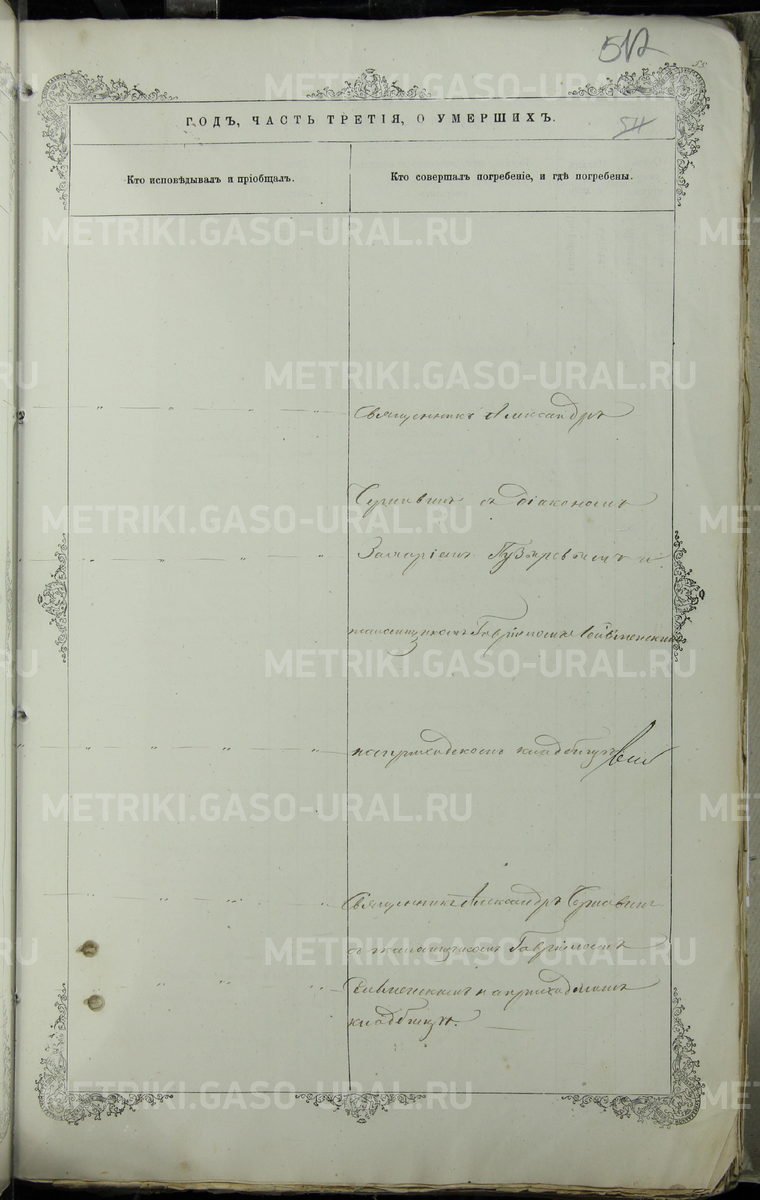 512
55
54
ГОДЪ, ЧАСТЬ ТРЕТІЯ, О УМЕРШИХЪ.
Кто исповѣдывалъ и пріобщалъ.
Кто совершалъ погребеніе, и гдѣ погребены.
Священникъ Александръ
съ діакономъ
Захаріемъ Пузыревымъ и
Гавріиломъ
на приходскомъ кладбищѣ
Священникъ Александръ
съ Гавріиломъ
на приходскомъ
кладбищѣ.
METRIKI.GASO-URAL.RU